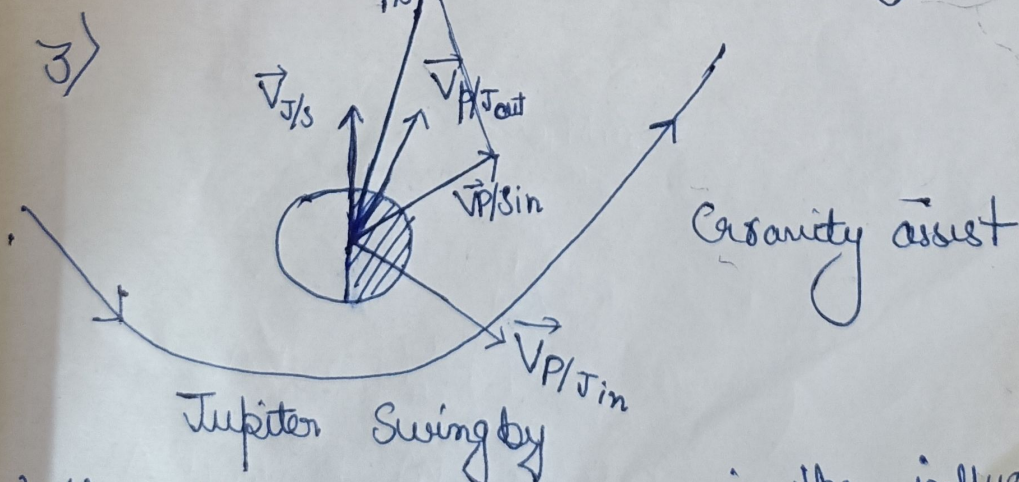 3)
V⃗J/S
V⃗P/Jout
V⃗P/Sin
Gravity assist
V⃗P/Jin
Jupiter Swing by